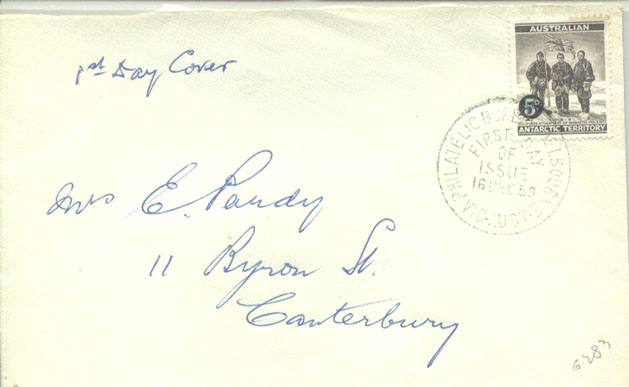 1st Day Cover
AUSTRALIAN
5D
ANTARCTIC TERRITORY
PHILATELIC BUREAU MELBOURNE
FIRST DAY
OF
ISSUE
16 DEC 59
VIC-AUST
Mrs E. Pardy
11 Byron St.
Canterbury